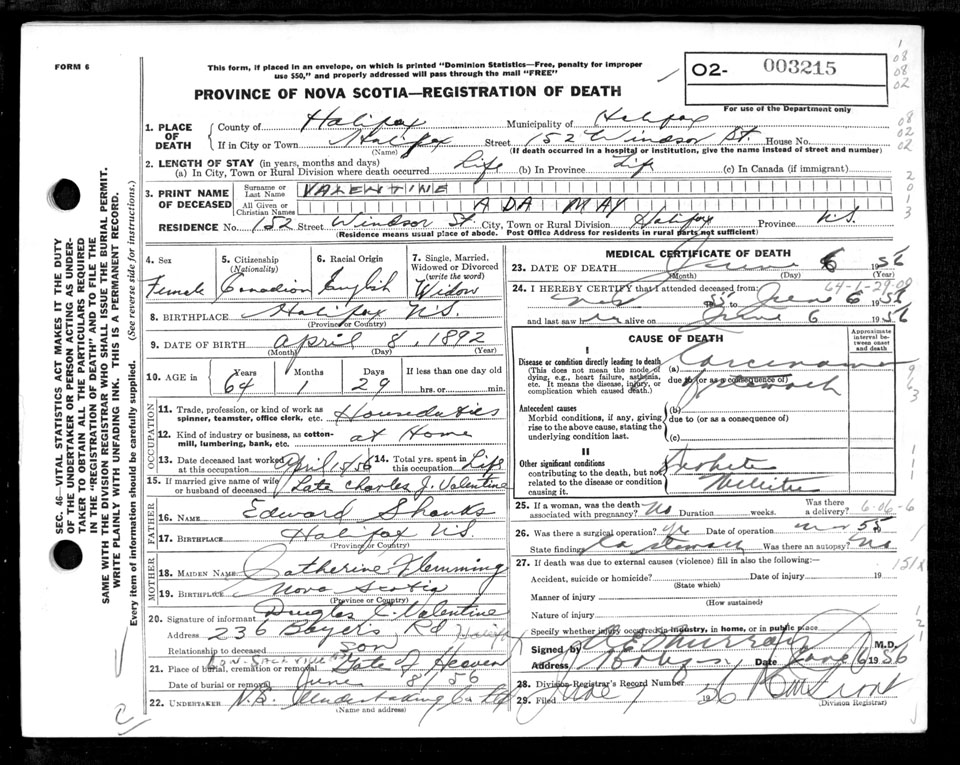 FORM 6
This form, if placed in an envelope, on which is printed "Dominion Statistics—Free, penalty for improper
use $50," and properly addressed will pass through the mail "FREE"
02- 003215
For use of the Department only
PROVINCE OF NOVA SCOTIA—REGISTRATION OF DEATH
1. PLACE OF DEATH County of Halifax Municipality of Halifax
If in City or Town Halifax Street 152 Windsor St. House No.
(Name) (If death occurred in a hospital or institution, give the name instead of street and number)
2. LENGTH OF STAY (in years, months and days)
(a) In City, Town or Rural Division where death occurred Life (b) In Province Life (c) In Canada (if immigrant)
3. PRINT NAME OF DECEASED Surname or Last Name VALENTINE
All Given or Christian Names ADA MAY
RESIDENCE No. 152 Street Windsor St. City, Town or Rural Division Halifax Province N.S.
(Residence means usual place of abode. Post Office Address for residents in rural parts not sufficient)
4. Sex Female
5. Citizenship (Nationality) Canadian
6. Racial Origin English
7. Single, Married, Widowed or Divorced (write the word) Widow
8. BIRTHPLACE Halifax N.S.
(Province or Country)
9. DATE OF BIRTH April 8, 1892
(Month) (Day) (Year)
10. AGE in Years 64 Months Days 29 If less than one day old
hrs. or min.
OCCUPATION
11. Trade, profession, or kind of work as
spinner, teamster, office clerk, etc. Houseduties
12. Kind of industry or business, as cotton-
mill, lumbering, bank, etc. at Home
13. Date deceased last worked at this occupation April 1956 14. Total yrs. spent in this occupation Life
15. If married give name of wife or husband of deceased Late Charles J. Valentine
FATHER
16. Name Edward Shanks
17. Birthplace Halifax N.S.
(Province or Country)
MOTHER
18. MAIDEN NAME Catherine Flemming
19. BIRTHPLACE Nova Scotia
(Province or Country)
20. Signature of informant Douglas C. Valentine
Address 236 Bayers Rd Halifax
Relationship to deceased son
21. Place of burial, cremation or removal Gate of Heaven
Date of burial or removal June 8 56
22. UNDERTAKER N.S. Undertaking Co Ltd
(Name and address)
MEDICAL CERTIFICATE OF DEATH
23. DATE OF DEATH June 6 1956
(Month) (Day) (Year)
24. I HEREBY CERTIFY that I attended deceased from:
55 to June 6 1956
and last saw her alive on June 6 1956
CAUSE OF DEATH
Approximate interval between onset and death
I
Disease or condition directly leading to death (a) Carcinoma
(This does not mean the mode of dying, e.g., heart failure, asthenia, etc. It means the disease, injury, or complication which caused death.)
due to (or as a consequence of) stomach
Antecedent causes (b)
Morbid conditions, if any, giving rise to the above cause, stating the underlying condition last.
due to (or as a consequence of)
(c)
II
Other significant conditions
contributing to the death, but not related to the disease or condition causing it.
Diabetes
Mellitus
25. If a woman, was the death associated with pregnancy? No Duration weeks. Was there a delivery?
26. Was there a surgical operation? Yes Date of operation Nov 55
State findings Ca stomach Was there an autopsy? No
27. If death was due to external causes (violence) fill in also the following:
Accident, suicide or homicide? Date of injury 19
(State which)
Manner of injury
(How sustained)
Nature of injury
Specify whether injury occurred in industry, in home, or in public place
Signed by M.D.
Address Date June 6 1956
28. Division Registrar's Record Number
29. Filed June 7 1956
(Division Registrar)
SEC. 46—VITAL STATISTICS ACT MAKES IT THE DUTY
OF THE UNDERTAKER OR PERSON ACTING AS UNDER-
TAKER TO OBTAIN ALL THE PARTICULARS REQUIRED
IN THE "REGISTRATION OF DEATH" AND TO FILE THE
SAME WITH THE DIVISION REGISTRAR WHO SHALL ISSUE THE BURIAL PERMIT.
WRITE PLAINLY WITH UNFADING INK. THIS IS A PERMANENT RECORD.
Every item of information should be carefully supplied. (See reverse side for instructions.)